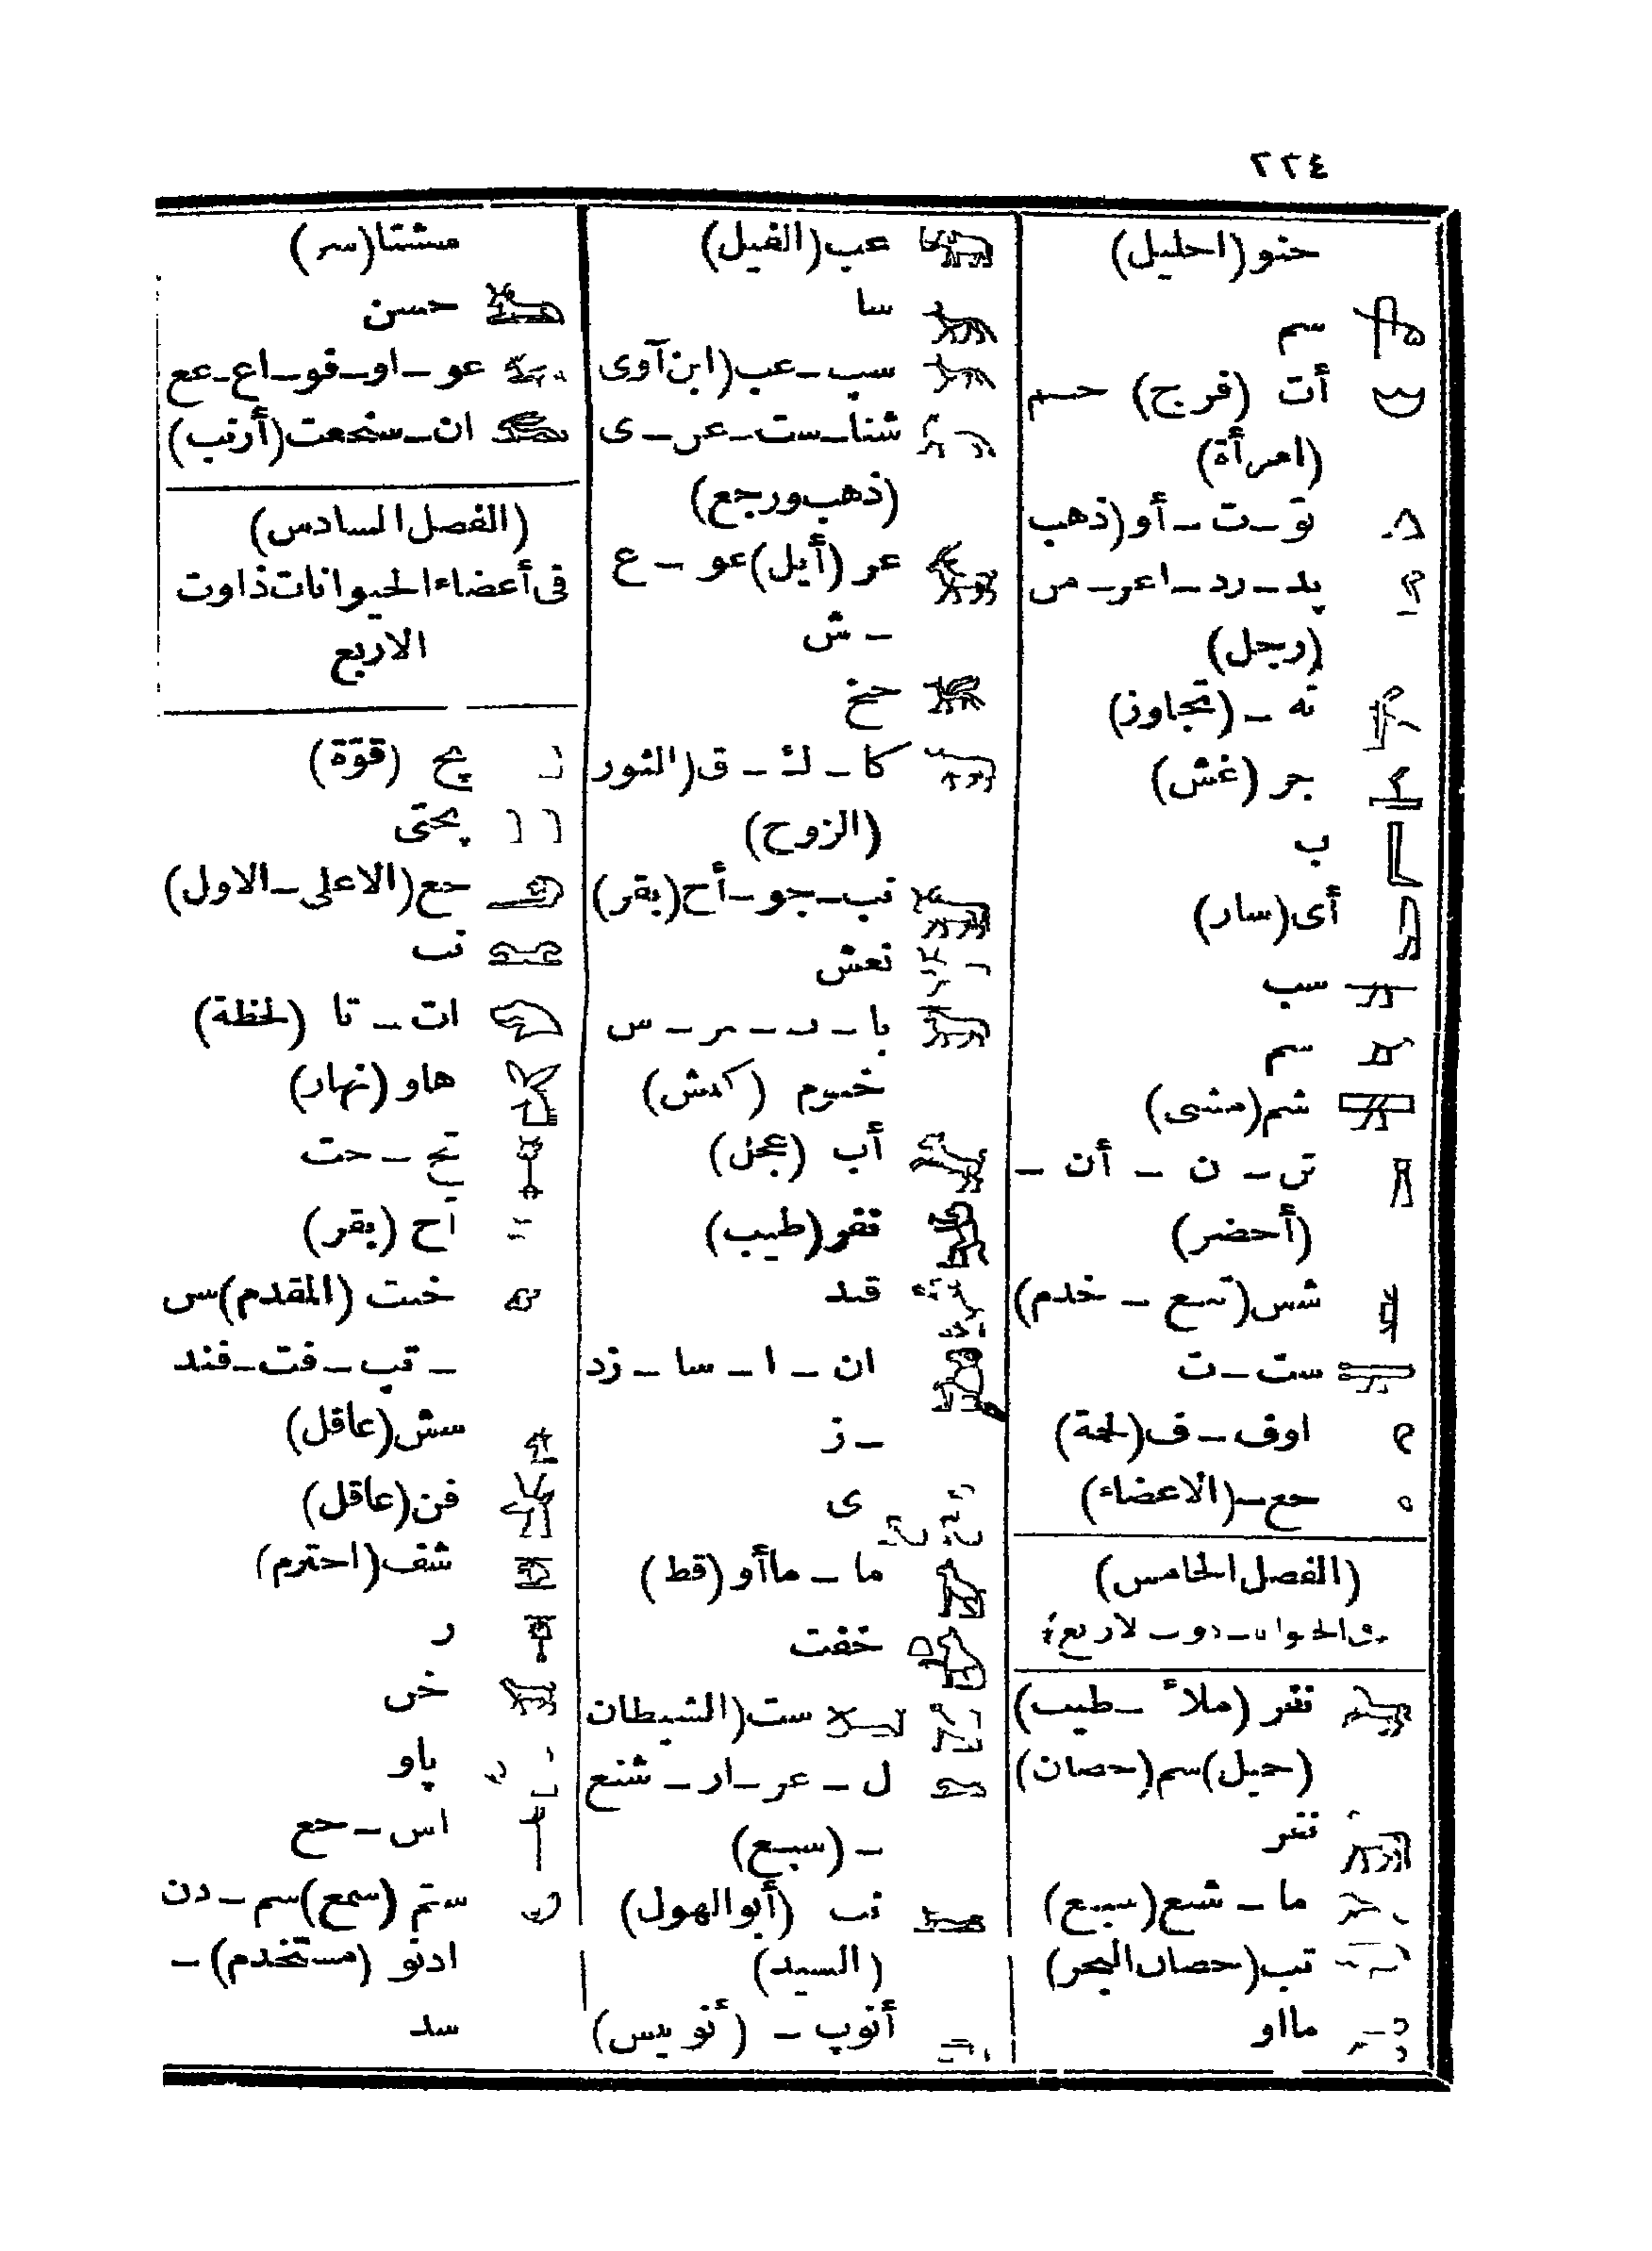 ٢٢٤
حنو (احليل)
سم
أت (فرج) حسم
(امرأة)
تو - ت - أو (ذهب
پد - رد - اعر - من
(رجل)
ته - (تجاوز)
جر (غش)
ب
أى (سار)
سب
سم
شم (مشى)
تن - ن - أن -
(أحضر)
شس (تبع - خدم)
ست - ت
اوف - ف (لحة)
حع - (الاعضاء)
(الفصل الخامس)
نفر (ملأ - طيب)
(خيل) سم (حصان)
نفر
ما - شع (سبع)
تب (حصان البحر)
مااو
عب (الفيل)
سا
سب - عب (ابن آوى
شنا - ست - عر - ى
(ذهب ورجع)
عر (أيل) عو - ع
- ش
حخ
كا - ك - ق (الثور
(الزوح)
نب - جو - أح (بقر)
نعش
با - ب - مر - س
خنوم (كبش)
أب (عجل)
نفر (طيب)
قند
ان - ا - سا - زد
- ز
ى
ما - ماأو (قط)
خفت
ست (الشيطان
ل - عر - ار - شنع
- (سبع)
نب (أبو الهول)
(السيد)
أنوپ - (أنوبيس)
مشتا (سر)
حسن
عو - او - فو - اع - عع
ان - سنحعت (أرنب)
(الفصل السادس)
فى أعضاء الحيوانات ذاوت
الاربع
پح (قوّة)
پحتى
حع (الاعلى - الاول)
نب
ات - تا (لحظة)
هاو (نهار)
تح - حت
آح (بقر)
خنت (المقدم) س
- تپ - فت - فند
سش (عاقل)
فن (عاقل)
شف (احترم)
ر
خن
پاو
اس - حع
ستم (سمع) سم - دن
ادنو (مستخدم) -
سد